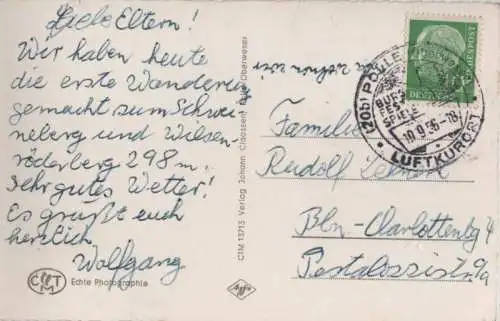 Liebe Eltern!
Wir haben heute
die erste Wanderung
gemacht zum Schwei-
neberg und Wilsen-
röderberg 298 m.
Sehr gutes Wetter!
Es grüßt euch
herzlich
Wolfgang
CTM
Echte Photographie
CTM 1515 Verlag Johann Claassen, Oberweser
Agfa
wohnen wir
(20b) POLLE
BURG
FEST
SPIELE
10.9.56-18
LUFTKURORT
20
DEUTSCHE BUNDESPOST
Familie
Rudolf
Bln-Charlottenbg 4
Pestalozzistr. 9a